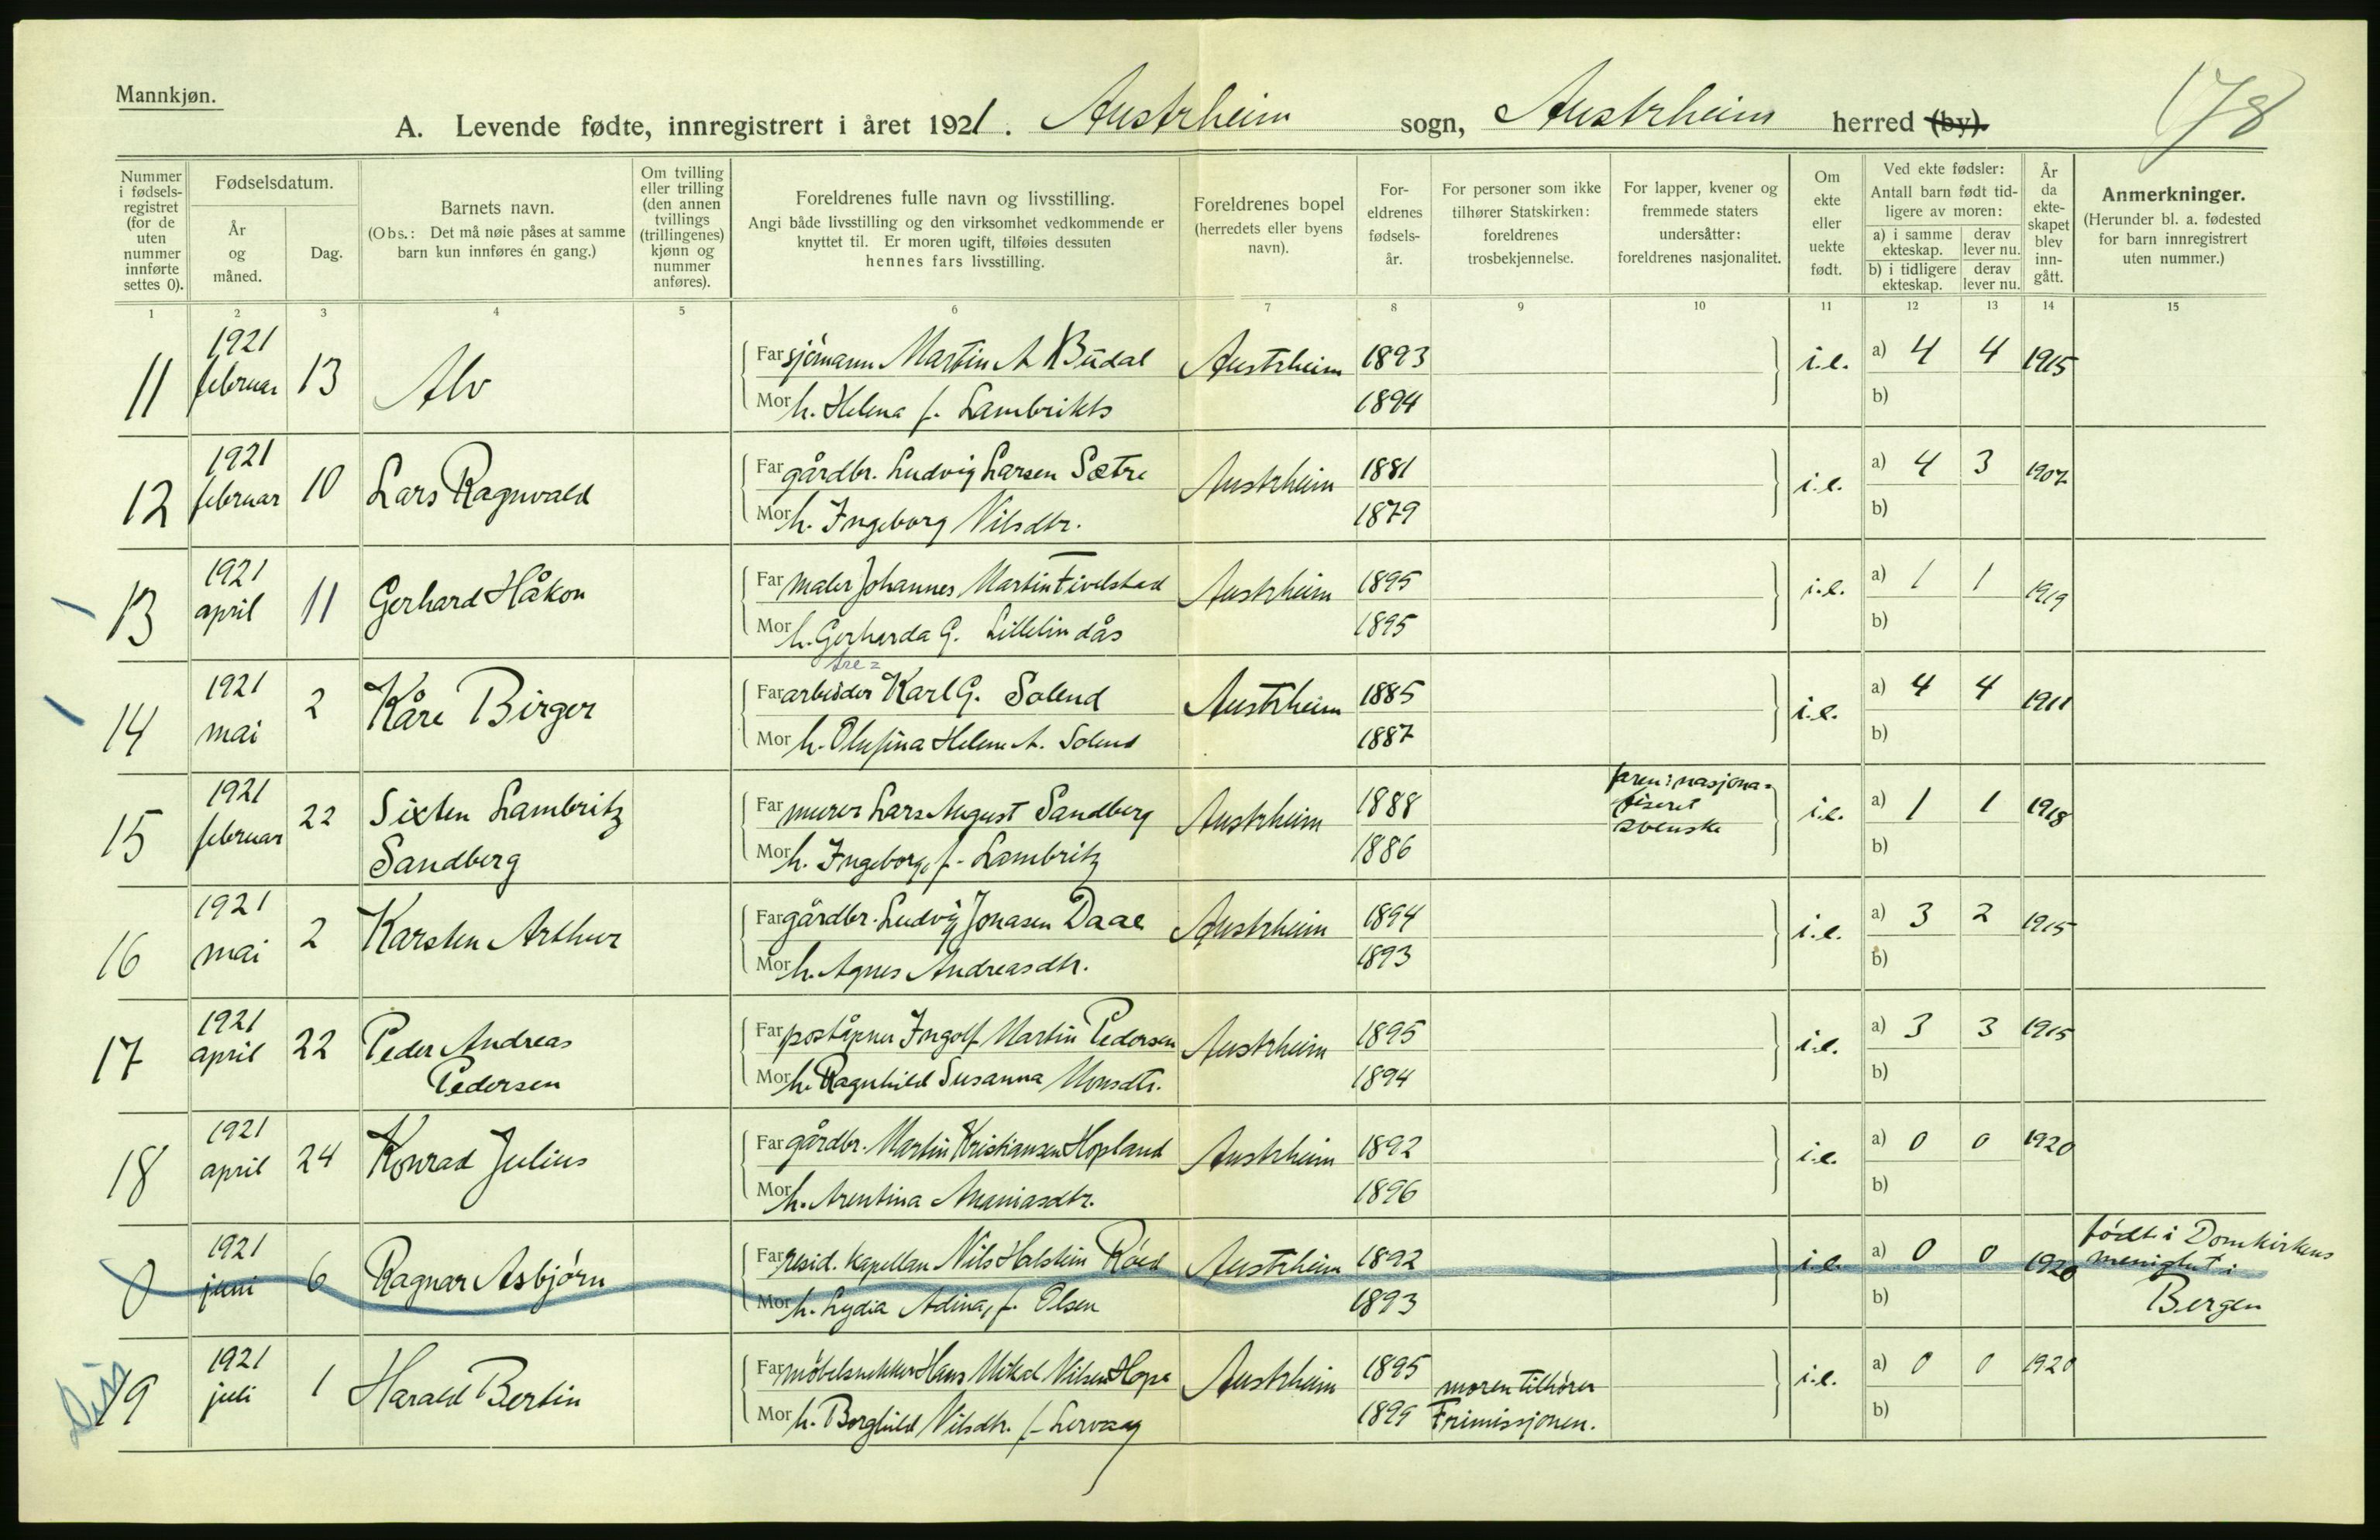 Mannkjøn.
178
A. Levende fødte, innregistrert i året 1921. Austrheim sogn, Austrheim herred (by).
Nummer i fødsels-registret (for de uten nummer innførte settes 0).
Fødselsdatum.
År og måned.
Dag.
Barnets navn.
(Obs.: Det må nøie påses at samme barn kun innføres én gang.)
Om tvilling eller trilling (den annen tvillings (trillingenes) kjønn og nummer anføres).
Foreldrenes fulle navn og livsstilling.
Angi både livsstilling og den virksomhet vedkommende er knyttet til. Er moren ugift, tilføies dessuten hennes fars livsstilling.
Foreldrenes bopel (herredets eller byens navn).
For-eldrenes fødsels-år.
For personer som ikke tilhører Statskirken: foreldrenes trosbekjennelse.
For lapper, kvener og fremmede staters undersåtter: foreldrenes nasjonalitet.
Om ekte eller uekte født.
Ved ekte fødsler:
Antall barn født tid-ligere av moren:
a) i samme ekteskap. derav lever nu.
b) i tidligere ekteskap. derav lever nu.
År da ekte-skapet blev inn-gått.
Anmerkninger.
(Herunder bl. a. fødested for barn innregistrert uten nummer.)
1 2 3 4 5 6 7 8 9 10 11 12 13 14 15
11 1921 februar 13 Alv
Far sjömann Martin A Búdal Austrheim 1893 i.e. a) 4 4 1915
Mor h. Helena f. Lambrikts 1894 b)
12 1921 februar 10 Lars Ragnvald
Far gårdbr. Ludvig Larsen Sætre Austrheim 1881 i.e. a) 4 3 1907
Mor h. Ingeborg Nilsdtr. 1879 b)
13 1921 april 11 Gerhard Håkon
Far maler Johannes Martin Fivelstad Austrheim 1895 i.e. a) 1 1 1919
Mor h. Gerharda G. Lillelindås 1895 b)
14 1921 mai 2 Kåre Birger
Far arbeider Karl G. Solend Austrheim 1885 i.e. a) 4 4 1911
Mor h. Olufina Helene A. Solend 1887 b)
15 1921 februar 22 Sixten Lambritz Sandberg
Far murer Lars August Sandberg Austrheim 1888 faren: nasjona-liseret svenske i.e. a) 1 1 1918
Mor h. Ingeborg, f. Lambritz 1886 b)
16 1921 mai 2 Karsten Arthur
Far gårdbr. Ludvig Jonasen Daae Austrheim 1894 i.e. a) 3 2 1915
Mor h. Agnes Andreasdtr. 1893 b)
17 1921 april 22 Peder Andreas Pedersen
Far poståpner Ingolf Martin Pedersen Austrheim 1895 i.e. a) 3 3 1915
Mor h. Ragnhild Susanna Monsdtr. 1894 b)
18 1921 april 24 Konrad Julius
Far gårdbr. Martin Kristiansen Hopland Austrheim 1892 i.e. a) 0 0 1920
Mor h. Arentina Ananiasdtr. 1896 b)
0 1921 juni 6 Ragnar Asbjörn
Far resid. kapellan Nils Halstein Röed Austrheim 1892 i.e. a) 0 0 1920 født i Domkirkens menighet i Bergen
Mor h. Lydia Adina, f. Olsen 1893 b)
19 1921 juli 1 Harald Bertin
Far möbelsnekker Hans Mikal Nilsen Hope Austrheim 1895 moren tilhörer i.e. a) 0 0 1920
Mor h. Borghild Nilsdtr. f. Lervaag 1899 Frimissjonen. b)